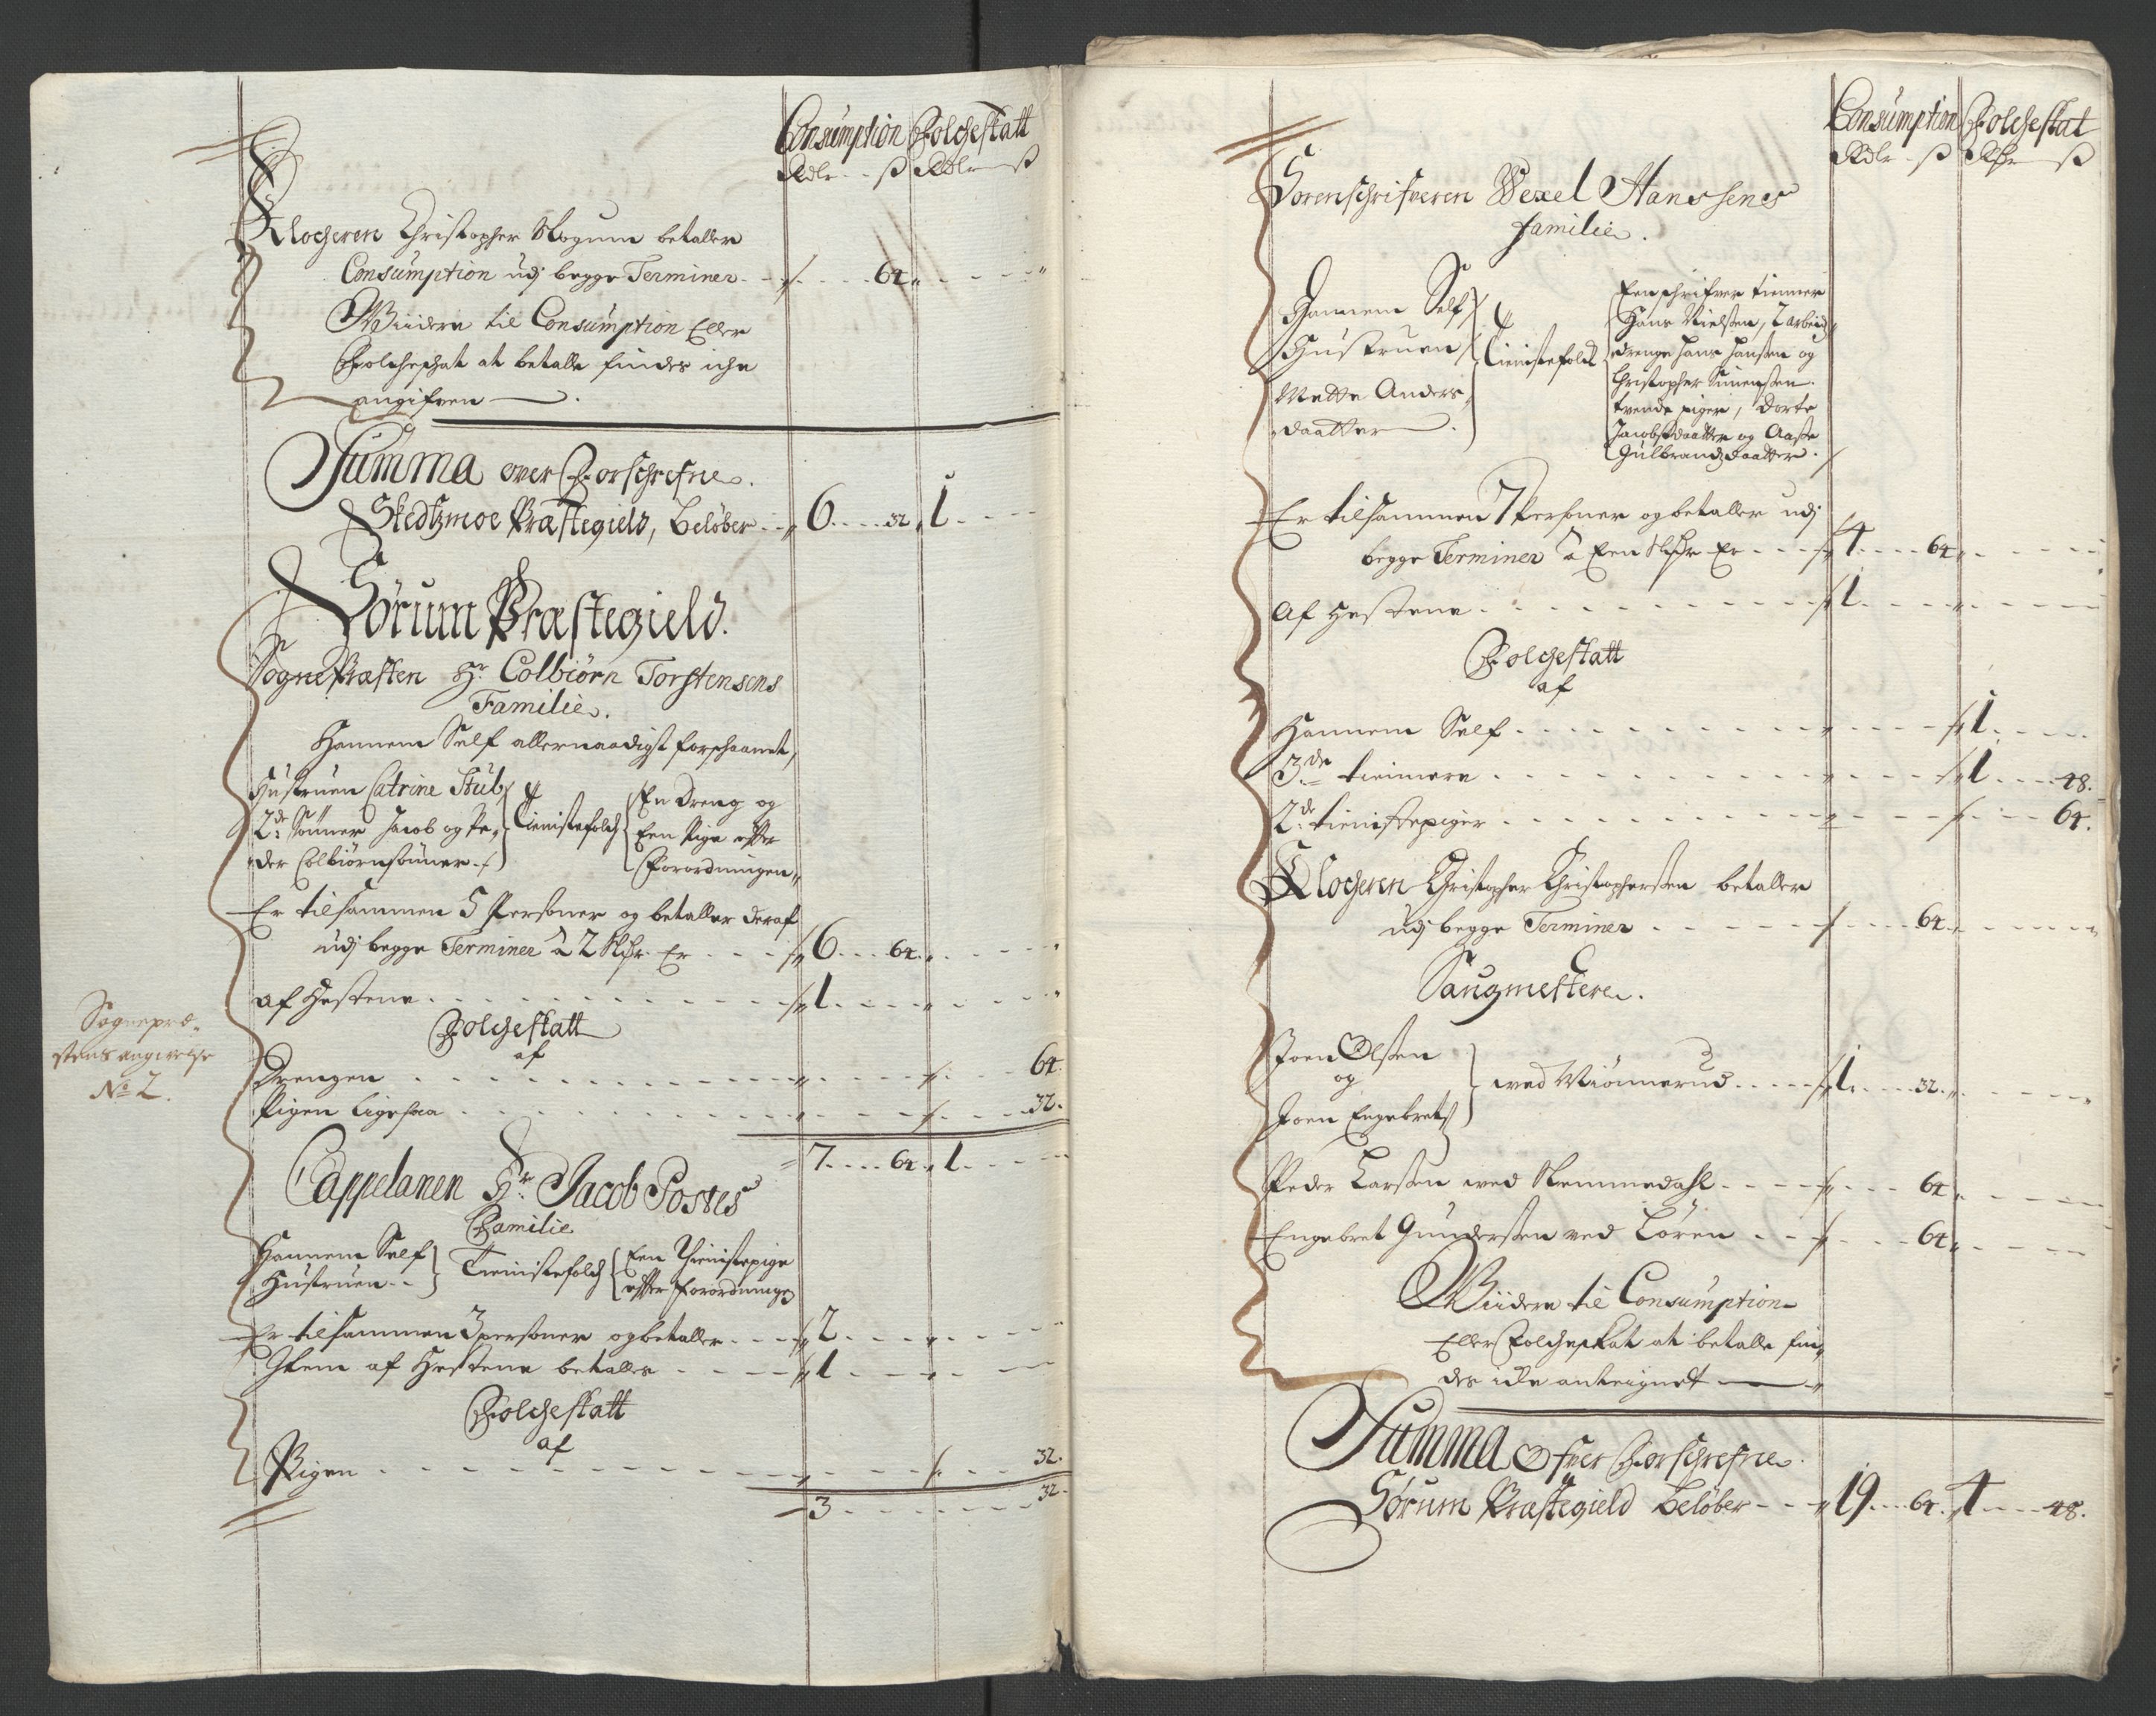 Consumption Folcheskatt
Rdlr - ß Rdlr - ß
Klocheren Christopher Skogum betaller
Consumption udj begge Terminer - - 64
Viidere til Consumption Eller
Folcheskat at betalle findes iche
angifven
Summa over Forschrefne
Skedtzmoe Præstegield, Beløber - - 6 - - 32 1
Sørum Præstegield.
Sognepræsten Hr. Colbiørn Torstensens
Familie.
Hannem Self allernaadigst forschaanet,
Hustruen Catrine Stub
2de Sønner Jacob og Pe-
der Colbiørnsønner
Tienistefolch
En Dreng og
Een Pige efter
Forordningen
Er tilsammen 5 Personer og betaller deraf
udj begge Terminer a 2 Rdr. Er - - 6 - - 64
af Hestene - - 1
Folcheskatt
af
Drengen - - 64.
Pigen ligesaa - - 32.
7 - - 64 1
Sognepræ-
stens angivelse
No 2.
Cappelanen Hr. Jacob Postes
Familie
Hannem Self
Hustruen
Tienistefolch
Een Thienistepige
efter forordninge
Er tilsammen 3 personer og betaller - - 2
Item af Hestene betalles - - 1
Folcheskatt
af
Pigen - - 32.
3 - - 32.
Consumption Folcheskat
Rdlr - ß Rdr - ß
Sorenschrifveren Wexel Hanssens
familie.
Hannem Self
Hustruen
Mette Anders
daatter
Tienistefolch
Een schrifver tienner
Hans Nielsen, 2 arbeids
drenge Hans Hansen og
Christopher Simensen.
tvende piger, Dorte
Jacobsdaatter og Aase
Gulbrandsdaatter.
Er tilsammen 7 Personer og betaller udj
begge Terminer a Een Rdr Er - - 4 - - 64
Af Hestene - - 1
Folcheskatt
af
Hannem Self - - 1
3de tiennere - - 1 - - 48.
2de tienistepiger - - 64.
Klocheren Christopher Christophersen betaller
udj begge Terminer - - 64
Saugmestere.
Joen Olsen
og
Joen Engebrets
ved Miønnerud - - 1 - - 32.
Peder Larsen ved Remmedahl - - 64
Engebret Gundersen ved Lören - - 64
Viidere til Consumption
Eller Folcheskat at betalle fin-
des icke anteignet
Summa Ofver Forschrefne
Sørum Præstegield Beløber - - 19 - - 64. 4 - - 48.